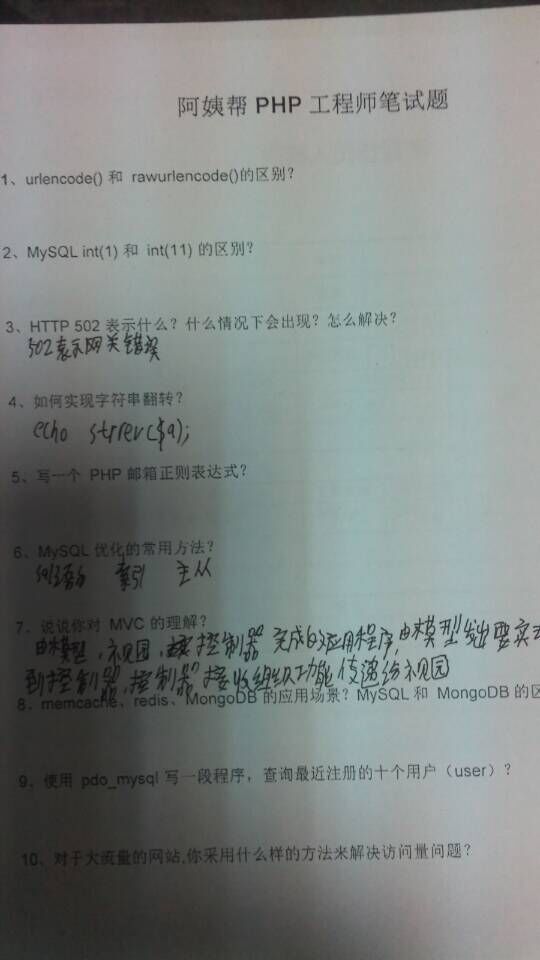 阿姨帮 PHP 工程师笔试题
1、urlencode() 和 rawurlencode()的区别？
2、MySQL int(1) 和 int(11) 的区别？
3、HTTP 502 表示什么？什么情况下会出现？怎么解决？
502表示网关错误
4、如何实现字符串翻转？
echo strrev($a);
5、写一个 PHP 邮箱正则表达式？
6、MySQL 优化的常用方法？
索引 主从
7、说说你对 MVC 的理解？
由模型，视图，控制器 完成的应用程序，由模型发出要实
到控制器，控制器接收组织功能传递给视图
8、memcache、redis、MongoDB 的应用场景？MySQL 和 MongoDB 的区
9、使用 pdo_mysql 写一段程序，查询最近注册的十个用户（user）？
10、对于大流量的网站,你采用什么样的方法来解决访问量问题？